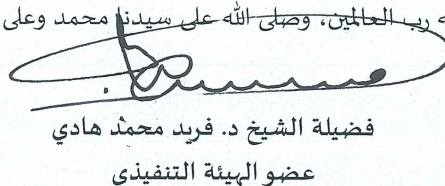 ه رب العالمين، وصلى الله على سيدنا محمد وعلى
فضيلة الشيخ د. فريد محمد هادي
عضو الهيئة التنفيذي